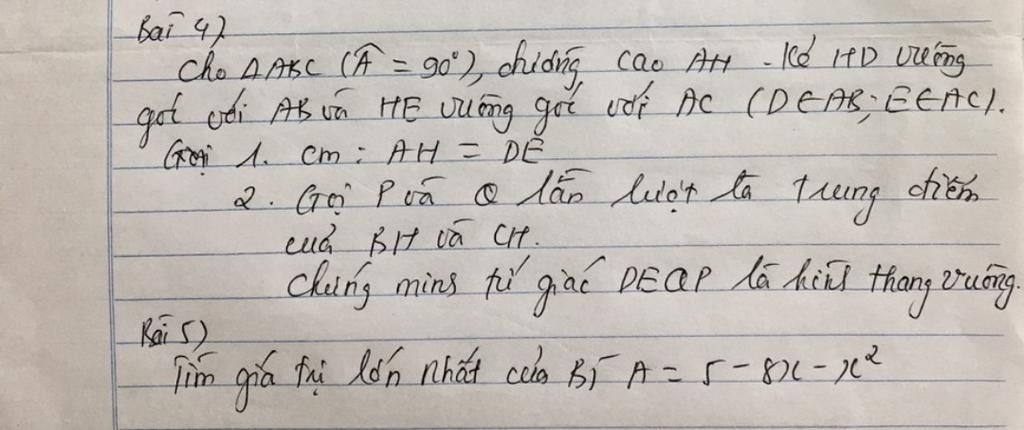 Bài 4)
Cho ΔABC (Â = 90°), đường cao AH - Kẻ HD vuông
góc với AB và HE vuông góc với AC (D∈AB; E∈AC).
Gọi 1. cm : AH = DE
2. Gọi P và Q lần lượt là trung điểm
của BH và CH.
Chứng minh tứ giác DEQP là hình thang vuông.
Bài 5)
Tìm giá trị lớn nhất của BT A = 5 - 8x - x²